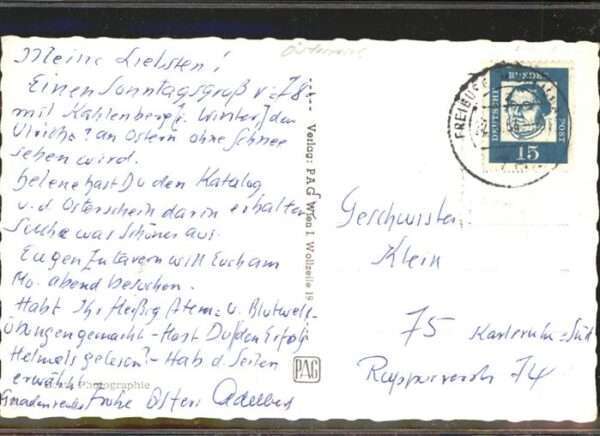 Österreich
Meine Liebsten!
Einen Sonntagsgruß v. 78
mit Kahlenberg i. Winter, den
Ulrich? an Ostern ohne Schnee
sehen wird.
Helene hast Du den Katalog
u. d. Osterschein darin erhalten
Suche was Schönes aus.
Eugen will Euch am
Mo. abend besuchen.
Habt Ihr fleißig Atem- u. Blutwell-
übungen gemacht - Hast Du den Erfolg
Helmuts gelesen? - Hab d. Seiten
erwählt
Photographie
Frohe Ostern
Verlag: PAG Wien I, Wollzeile 19
PAG
FREIBURG
DEUTSCHE BUNDESPOST
15
Geschwister
Klein
75 Karlsruhe-Süd
74